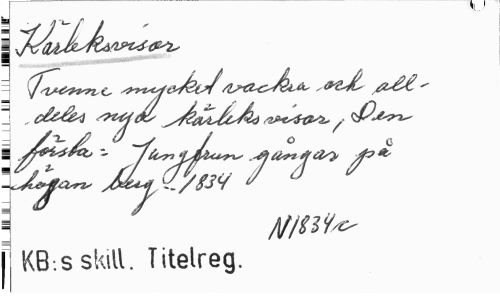 Kärleksvisor
Tvenne mycket vackra och all-
deles nya kärleksvisor, Den
första: Jungfrun gångar på
högan berg... 1834
N1834c
KB:s skill. Titelreg.